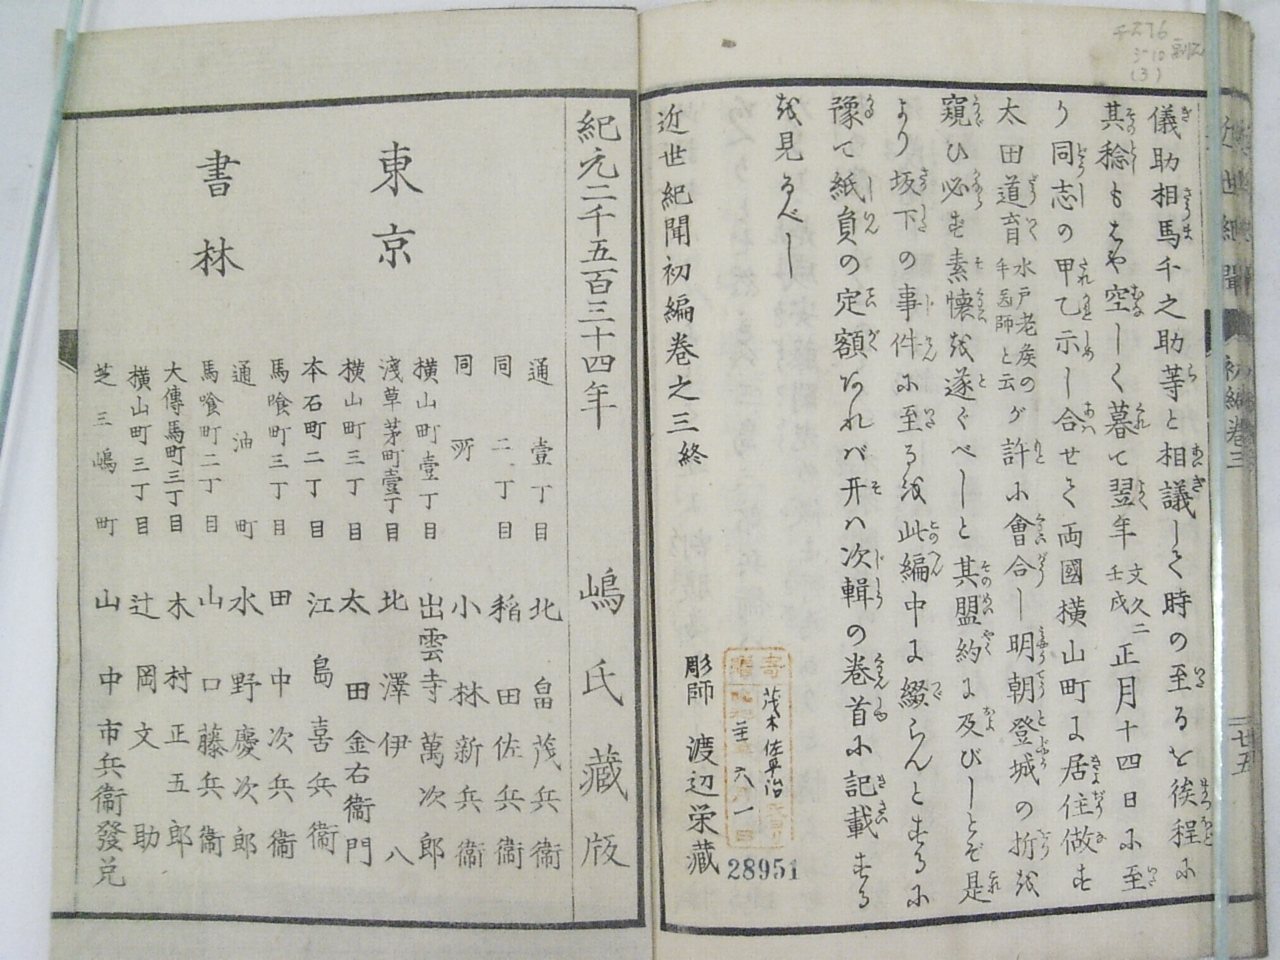 儀助相馬千之助等と相議して時の至るを俟程に
其稔もはや空しく暮て翌年文久二壬戌正月十四日に至
り同志の甲乙示し合せて両國横山町に居住做す
太田道育水戸老矦の手医師と云が許に會合し明朝登城の折を
窺ひ必ず素懐を遂ぐべしと其盟約に及びしとぞ是
より坂下の事件に至るを此編中に綴らんとするに
豫て紙員の定額あれバ开ハ次輯の巻首に記載する
を見るべし
近世紀聞初編巻之三終
彫師 渡辺栄藏
28951
近世紀聞 初編巻三
廿五
紀元二千五百三十四年 嶋氏藏版
東京
書林
通壹丁目 北畠茂兵衞
同二丁目 稲田佐兵衞
同所 小林新兵衞
横山町壹丁目 出雲寺萬次郎
淺草茅町壹丁目 北澤伊八
横山町三丁目 太田金右衞門
本石町二丁目 江島喜兵衞
馬喰町三丁目 田中次兵衞
通油町 水野慶次郎
馬喰町二丁目 山口藤兵衞
大傳馬町三丁目 木村正五郎
横山町三丁目 辻岡文助
芝三嶋町 山中市兵衞發兌